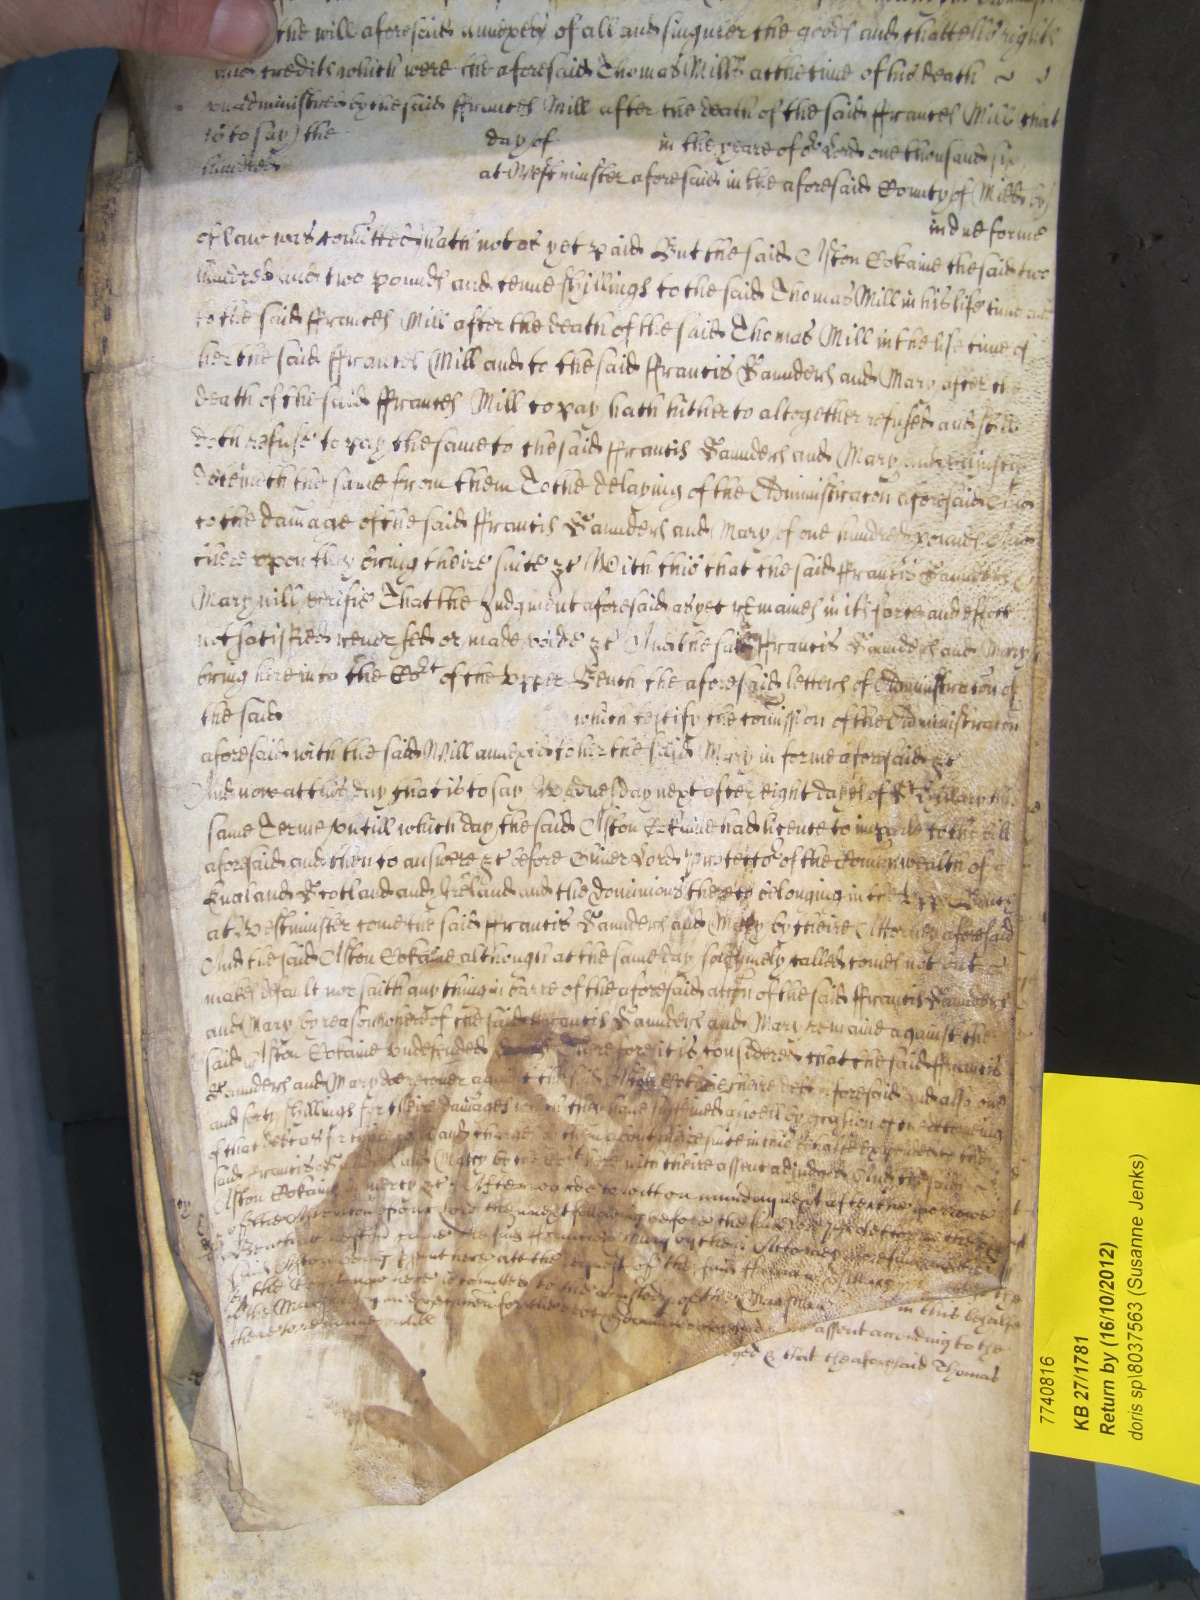 the will aforesaid annexed of all and singuler the goods and chattells rights
and credits which were the aforesaid Thomas Mills at the time of his death
unadministred by the said Frances Mill after the death of the said Frances Mill that
is to say) the day of in the yeare of or Lord one thousand six
hundred at Westminster aforesaid in the aforesaid County of Midd by
in due forme
of law was comitted) hath not as yet paid But the said Aston Cokaine the said two
hundred and two pounds and tenne shillings to the said Thomas Mill in his life time and
to the said ffrances Mill after the death of the said Thomas Mill in the life time of
her the said ffrances Mill and to the said ffrancis Saunders and Mary after the
death of the said ffrances Mill to pay hath hitherto altogether refused and still
doth refuse to pay the same to the said ffrancis Saunders and Mary and
deteineth the same from them To the delaying of the Administracon aforesaid And
to the damage of the said ffrancis Saunders and Mary of one hundred pounds And
thereupon they bring theire suite &c With this that the said ffrancis Saunders &
Mary will verifie That the Judgment aforesaid as yet remaines in its force and effect
not satisfied reversed or made voide &c And the said ffrancis Saunders and Mary
bring here into the Cort of the upper Bench the aforesaid letters of Administracon of
the said which testify the comission of the Administracon
aforesaid with the said Will annexed to her the said Mary in forme aforesaid &c
And now at this day that is to say Wednesday next after eight dayes of St Hilary this
same Terme untill which day the said Aston Cokaine had licence to imparle to the bill
aforesaid and then to answere &c before Oliver Lord Protector of the Comonwealth of
England Scotland and Ireland and the dominions thereto belonging in the Upper Bench
at Westminster come the said ffrancis Saunders and Mary by theire Attorney aforesaid
And the said Aston Cokaine although at the same day solemnely called comes not but
makes default nor saith any thing in barre of the aforesaid accon of the said ffrancis Saunders
and Mary by reason whereof the said ffrancis Saunders and Mary remaine against the
said Aston Cokaine undefended Therefore it is considered that the said ffrancis
Saunders and Mary doe recover against the said Aston Cokaine theire debt aforesaid and also
and forty shillings for theire damages which they have susteined aswell by occasion of the deteining
of that debt as for their costs and charges by them about theire suite in this behalfe expended to the
said ffrancis Saunders and Mary by the Cort here with theire assent adjudged And the said
Aston Cokaine in mercy &c Afterwards to witt on munday next after the morrow
of the Ascention of our Lord then next following before the said Lord protector in the
Bench at Westm come the said ffrancis and Mary by their Attorney
said Aston being present here att the request of the said ffrancis & Mary
the here is comitted to the custody of the Marshall
of the Marshalsey in execucon for the debt & damages aforesaid
there to remaine untill
in this behalfe
assent according to the
& that the aforesaid Thomas
7740816
KB 27/1781
Return by (16/10/2012)
doris sp\8037563 (Susanne Jenks)